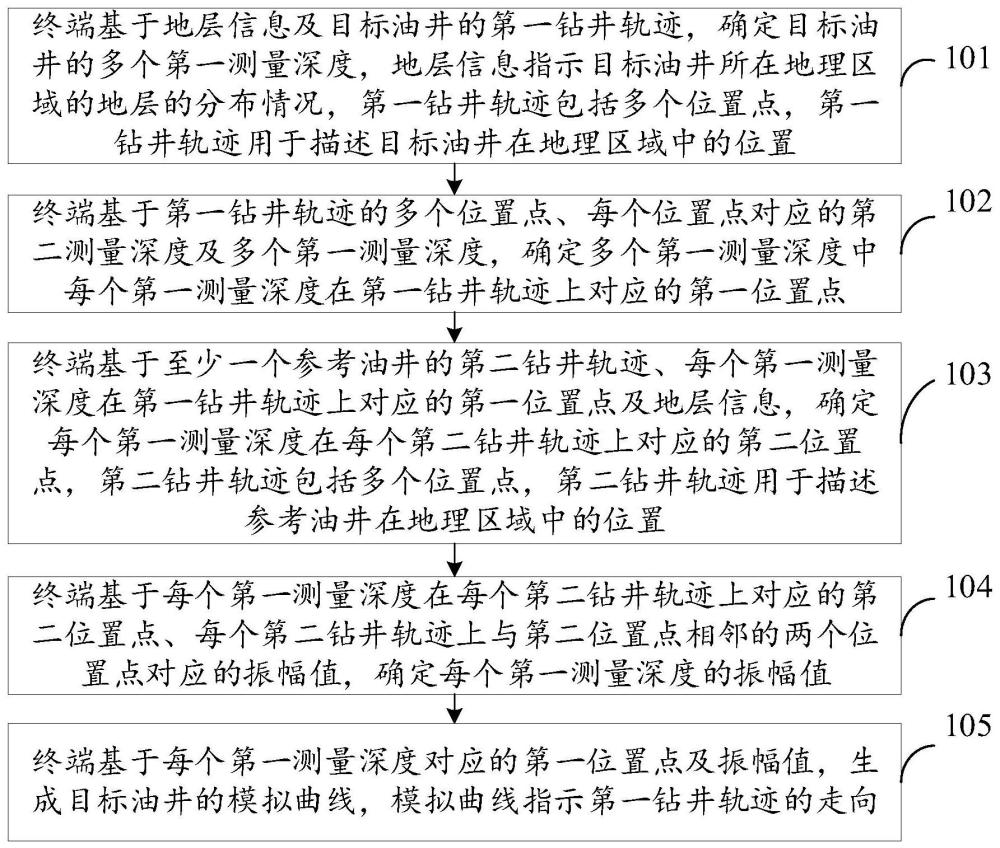 终端基于地层信息及目标油井的第一钻井轨迹，确定目标油
井的多个第一测量深度，地层信息指示目标油井所在地理区
域的地层的分布情况，第一钻井轨迹包括多个位置点，第一
钻井轨迹用于描述目标油井在地理区域中的位置
101
终端基于第一钻井轨迹的多个位置点、每个位置点对应的第
二测量深度及多个第一测量深度，确定多个第一测量深度中
每个第一测量深度在第一钻井轨迹上对应的第一位置点
102
终端基于至少一个参考油井的第二钻井轨迹、每个第一测量
深度在第一钻井轨迹上对应的第一位置点及地层信息，确定
每个第一测量深度在每个第二钻井轨迹上对应的第二位置
点，第二钻井轨迹包括多个位置点，第二钻井轨迹用于描述
参考油井在地理区域中的位置
103
终端基于每个第一测量深度在每个第二钻井轨迹上对应的第
二位置点、每个第二钻井轨迹上与第二位置点相邻的两个位
置点对应的振幅值，确定每个第一测量深度的振幅值
104
终端基于每个第一测量深度对应的第一位置点及振幅值，生
成目标油井的模拟曲线，模拟曲线指示第一钻井轨迹的走向
105